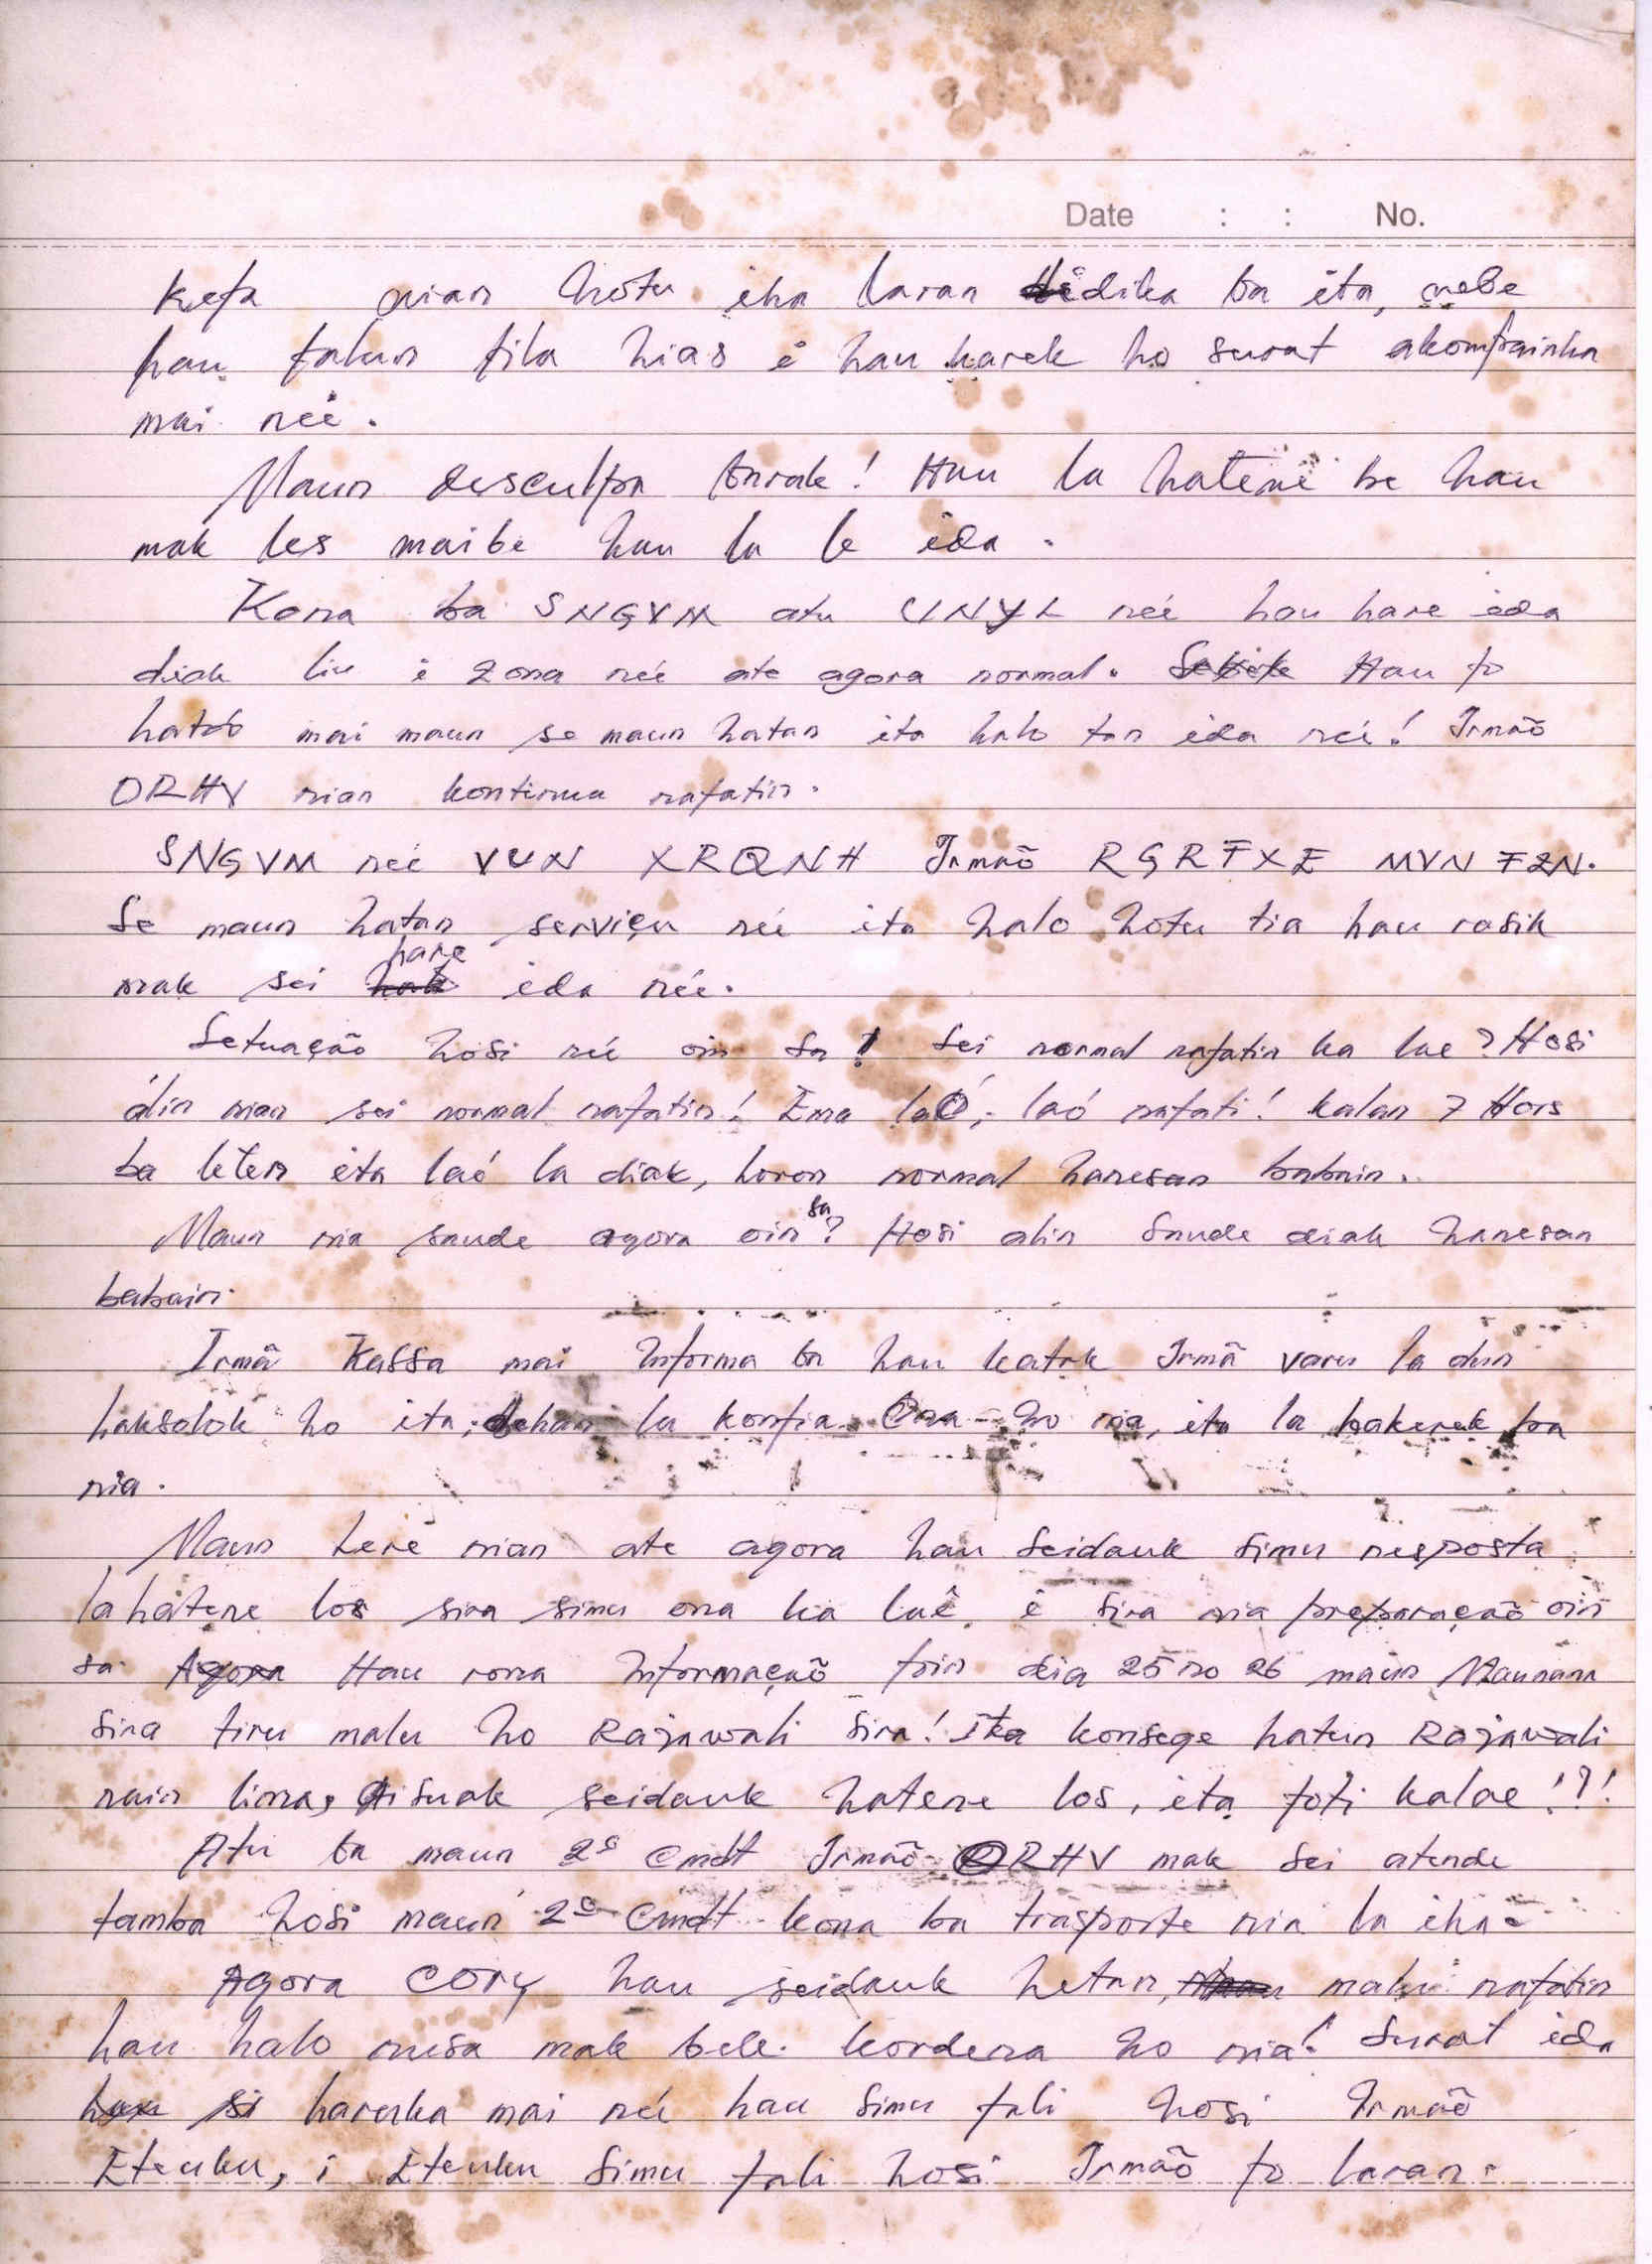 Date : : No.
Keta nian hotu iha laran dedika ba ita, nebe
hau falun fila hias i hau harek ho surat akompainha
mai neé.
Maun desculpa barak! Hau la hatene be hau
mak les maibe hau la le ida.
Kona ba SNGVM atu UNYL neé hau hare ida
diak liu i zona neé ate agora normal. Hau fo
hatob mai maun se maun hatan ita halo tan ida neé! Irmaõ
ORHV nian kontinua nafatin.
SNGVM neé VUN XRQNH Irmaõ RGRFXE MVN FZN.
Se maun hatan serviçu neé ita halo hotu tia hau rasik
mak sei hare ida neé.
Setuaçaõ hosi neé oin sa! Sei normal nafatin ka lae? Hosi
alin nian sei normal nafatin! Ema laó, laó nafati! kalan 7 Hors
ba leten ita laó la diak, loron normal hanesan babain.
Maun nia saude agora oin sa? Hosi alin saude diak hanesan
babain.
Irmã Kassa mai informa ba hau katak Irmã varu la dun
haksolok ho ita, dehan la konfia ona ho nia, ita la hakerek ba
nia.
Maun Lere nian ate agora hau seidauk simu resposta
la hatene los sira simu ona ka laê i sira nia preparaçaõ oin
sa. Hau rona informaçaõ foin dia 25 no 26 maun Maunana
sira tiru malu ho Rajawali sira! Ita konsege hatun Rajawali
nain lima, seidauk hatene los, ita foti kalae!?!
Atu ba maun 2º Cmdt Irmaõ ORHV mak sei atende
tamba hosi maun 2º Cmdt kona ba trasporte nia la iha.
Agora CORY hau seidauk hetan, malu nafatin
hau halo nusa mak bele kordena ho nia! Surat ida
haruka mai neé hau simu fali hosi Irmaõ
Eteuku, i Eteuku simu fali hosi Irmaõ fo laran.